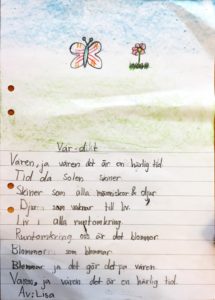 Vår-dikt
Våren, ja våren det är en härlig tid.
Tid då solen skiner.
Skiner som alla människor & djur.
Djur som vaknar till liv.
Liv i alla runtomkring.
Runtomkring oss är det blommor.
Blommor som blommar.
Blommar ja det gör det på våren.
Våren, ja våren det är en härlig tid.
Av: Lisa